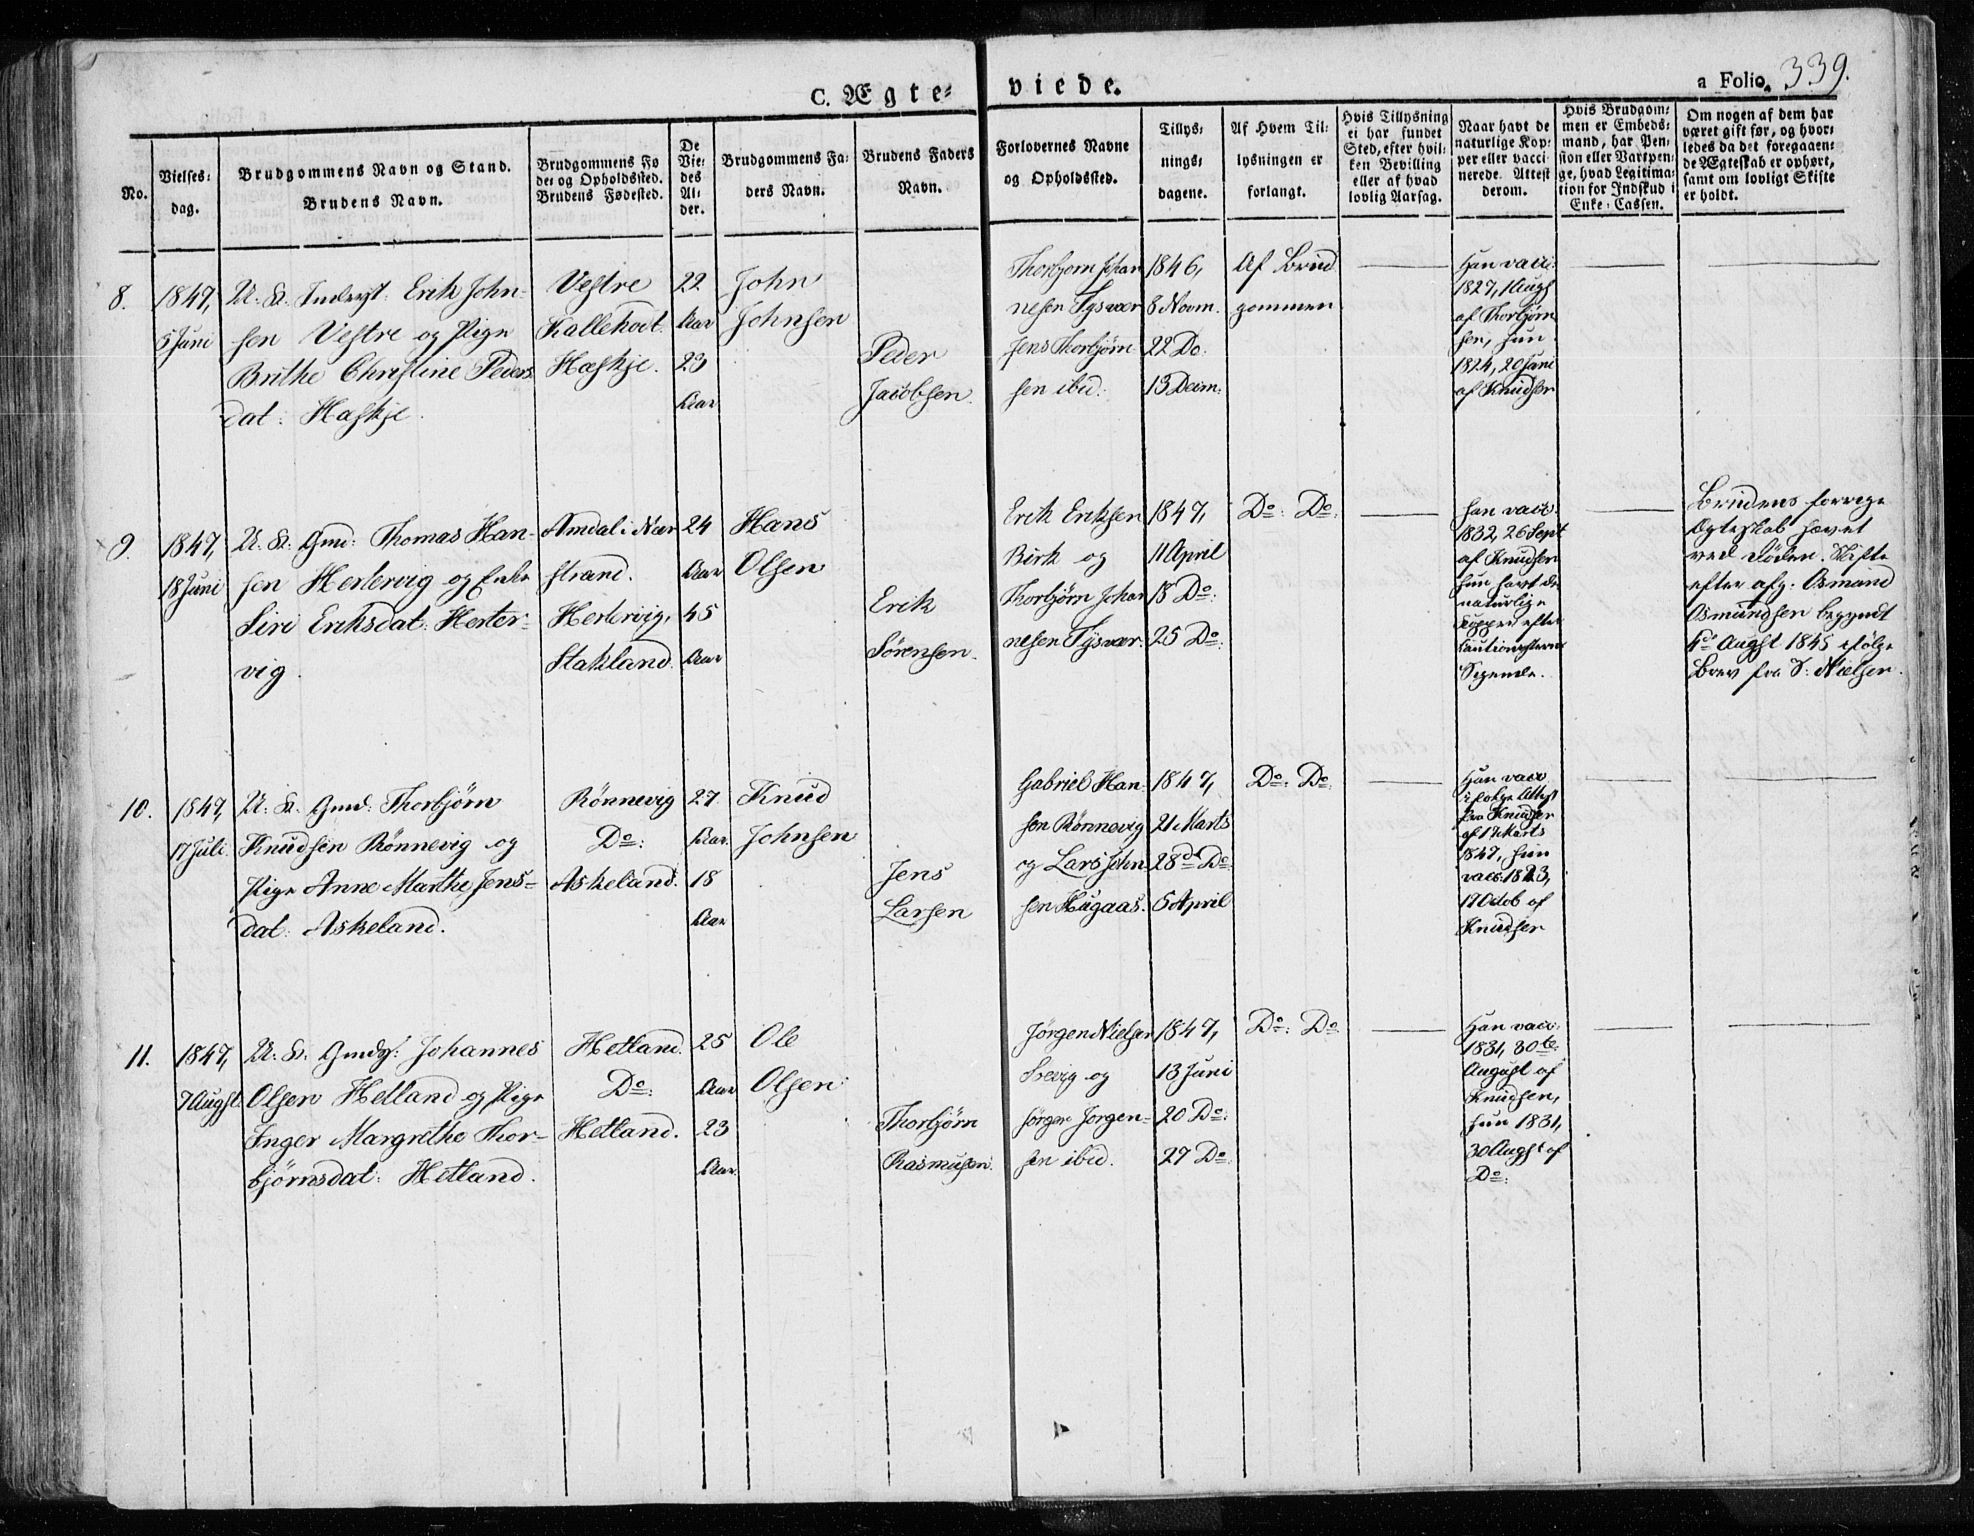 C. Ægte=
viede.
a Folio. 339.
No.
Vielses=
dag.
Brudgommens Navn og Stand.
Brudens Navn.
Brudgommens Fø
de= og Opholdssted.
Brudens Fødested.
De
Vie=
des
Al=
der.
Brudgommens Fa=
ders Navn.
Brudens Faders
Navn.
Forlovernes Navne
og Opholdssted.
Tillys=
nings=
dagene.
Af Hvem Til=
lysningen er
forlangt.
Hvis Tillysning
ei har fundet
Sted, efter hvil=
ken Bevilling
eller af hvad
lovlig Aarsag.
Naar havt de
naturlige Kop=
per eller vacci=
nerede. Attest
derom.
Hvis Brudgom=
men er Embeds=
mand, har Pen=
sion eller Vartpen=
ge, hvad Legitima=
tion for Indskud i
Enke=Cassen.
Om nogen af dem har
været gift før, og hvor=
ledes da det foregaaen=
de Ægteskab er ophørt,
samt om lovligt Skifte
er holdt.
8.
1847,
5 Juni
U. K. Inderst: Erik John-
sen Vestre og Pige
Brithe Christine Peders
dat: Haskje.
Vestre
Kallehodt.
Haskje.
22
Aar
23
Aar
John
Johnsen
Peder
Jacobsen.
Thorbjorn Johan
nesen Tysvær
Jens Thorbjørn
sen ibid:
1846,
8 Novm.
22 Do:
13 Decm:
Af Brud
gommen
Han vacc:
1827, 1 Augst
af Thorbjørn
sen, hun
1824, 20 Juni
af Knudsen
9.
1847,
18 Juni
U. K. Gmd: Thomas Han-
sen Hertervig og Enke
Siri Eriksdat: Herter-
vig.
Amdal i Nær
strand.
Hertervig,
Stakland.
24
Aar
45
Aar
Hans
Olsen
Erik
Sørensen.
Erik Eriksen
Birk og
Thorbjørn Johan
nesen Tysvær.
1847,
11 April
18 Do:
25 Do:
Do: Do:
Han vacc:
1832, 26 Sept
af Knudsen
hun havt de
naturlige
Kopper efter
Cautionisternes
Sigende.
Brudens forrige
Ægteskab hævet
ved Døden. Skifte
efter afg. Osmund
Osmundsen begyndt
4de Augst 1845 ifølge
Brev fra S: Nielsen.
10.
1847,
17 Juli.
U. K. Gmd: Thorbjørn
Knudsen Rönnevig og
Pige Anne Marthe Jens-
dat: Askeland.
Rönnevig
Do:
Askeland.
27
Aar.
18
Aar
Knud
Johnsen
Jens
Larsen
Gabriel Han
sen Rönnevig
og Lars John
sen Hugaas.
1847,
21 Marts
28de Do
5 April
Do: Do
Han vacc.
ifølge Attest
fra Knudsen
af 1 Marts
1847, hun
vacc: 1823,
17 Octob af
Knudsen
11.
1847,
7 Augst.
U. K. Gmds: Johannes
Olsen Hetland og Pige
Inger Margrethe Thor-
bjørnsdat: Hetland.
Hetland.
Do:
Hetland.
25
Aar
23
Aar
Ole
Olsen
Thorbjørn
Rasmusen.
Jørgen Nielsen
og
Jörgen Jörgen-
sen ibid.
1847,
13 Juni
20 Do:
27 Do:
Do: Do
Han vacc:
1831, 30te
August af
Knudsen,
hun 1831,
30 Augst af
Do: